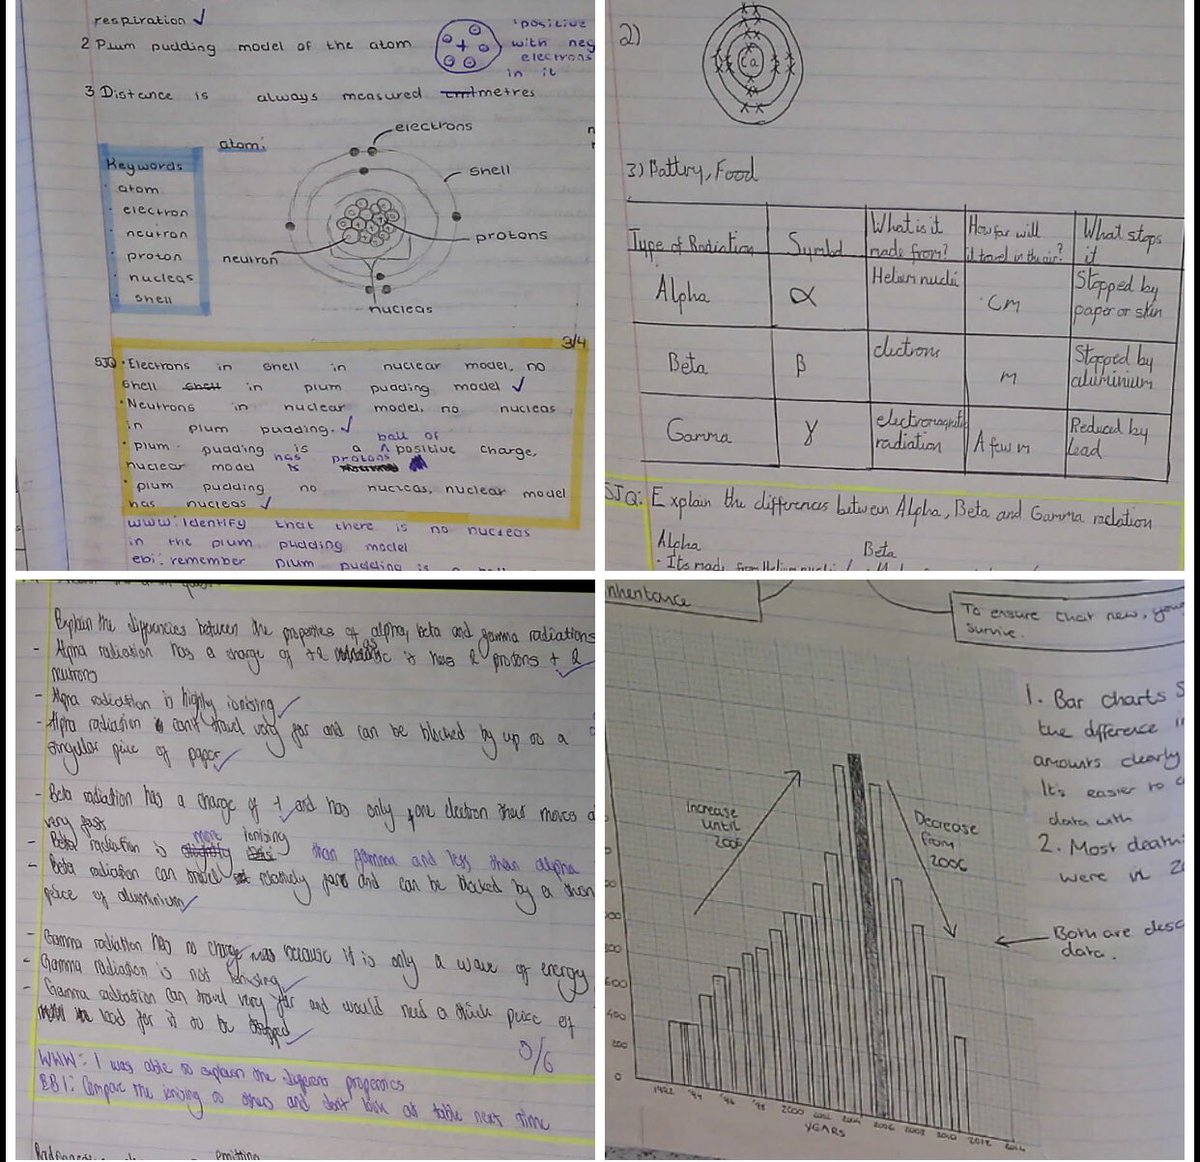 respiration ✓
2 Plum pudding model of the atom
+
'positive
with neg
electrons
in it
3 Distance is always measured metres
atom:
electrons
shell
protons
neutron
nucleas
Keywords
· atom
· electron
· neutron
· proton
· nucleas
· shell
3/4
SJQ · Electrons in shell in nuclear model, no
shell shell in plum pudding model ✓
· Neutrons in nuclear model, no nucleas
in plum pudding. ✓
· plum pudding is a ball of positive charge,
nuclear model has protons
· plum pudding no nucleas, nuclear model
has nucleas ✓
WWW: Identify that there is no nucleas
in the plum pudding model
ebi: remember plum pudding is a
2)
Ca
3) Battery, Food
Type of Radiation Symbol What is it made from? How far will it travel in the air? What stops it
Alpha α Helium nuclei cm Stopped by paper or skin
Beta β electrons m Stopped by aluminium
Gamma γ electromagnetic radiation A few m Reduced by Lead
SJQ: Explain the differences between Alpha, Beta and Gamma radiation
Alpha Beta
· Its made from Helium nuclei
Explain the differencies between the properties of alpha, beta and gamma radiations
- Alpha radiation has a charge of +2 as it has 2 protons + 2
neutrons
- Alpha radiation is highly ionising ✓
- Alpha radiation can't travel very far and can be blocked by up to a
singular piece of paper ✓
- Beta radiation has a charge of -1 and has only one electron that moves
very fast
- Beta radiation is more ionising than gamma and less than alpha
- Beta radiation can travel relatively far and can be blocked by a
piece of aluminium ✓
- Gamma radiation has no charge because it is only a wave of energy
- Gamma radiation is not ionising ✓
- Gamma radiation can travel very far and would need a thick piece of
lead for it to be stopped ✓
5/6
WWW: I was able to explain the different properties
EBI: Compare the ionising to others and don't look at table next time
emitting
nheritance
To ensure that new, you
survive.
1. Bar charts S
the difference i
amounts clearly
It's easier to
data with
2. Most death
were in 20
Both are desc
data.
Increase
until
2006
Decrease
from
2006
600
400
200
0
1992 '94 '96 '98 2000 2002 2004 2006 2008 2010 2012 2014
YEARS